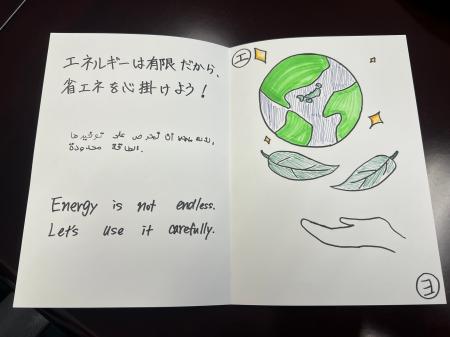 エネルギーは有限だから、
省エネを心掛けよう！
أن نحرص على توفيرها
الطاقة محدودة.
Energy is not endless.
Let's use it carefully.
エ
E